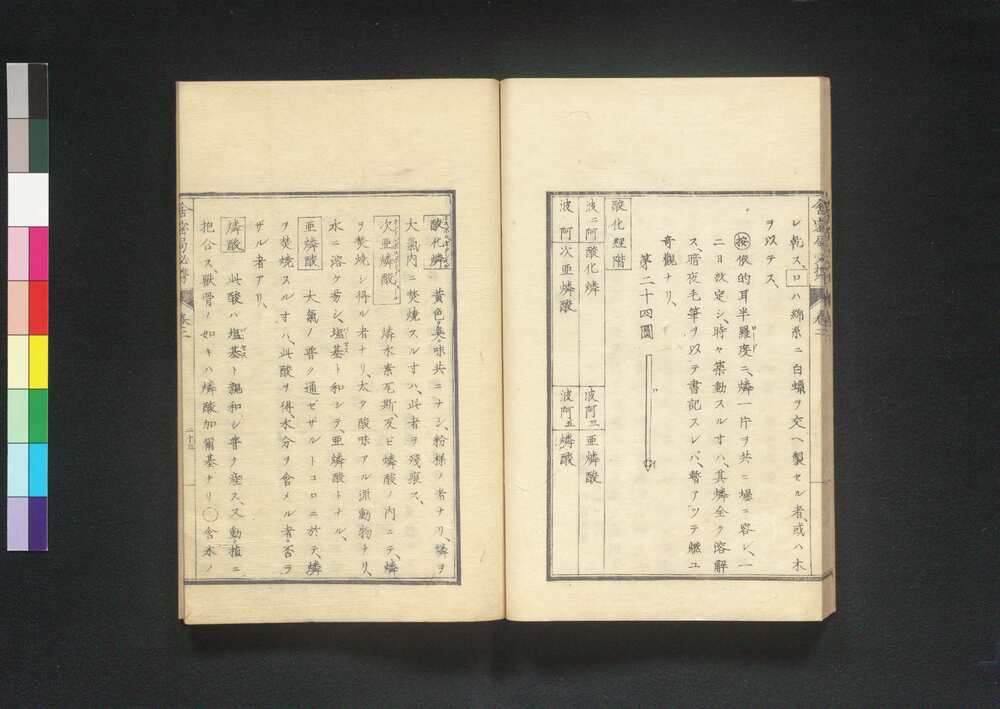 レ乾ス、ロハ綿糸ニ白蠟ヲ交ヘ製セル者、或ハ木
ヲ以テス、
按依的耳半羅度ニ、燐一片ヲ共ニ壜ニ容レ、一
二日放定シ、時々簗動スルオハ、其燐全ク溶解
ス、暗夜毛筆ヲ以テ書記スレバ、暫アツテ燃ユ
奇觀ナリ、
第二十四圖
酸化經階
波二阿酸化燐
波阿三亜燐酸
波阿次亜燐酸
波阿五燐酸
酸化燐 黄色臭味共ニナシ、粉様ノ者ナリ、燐ヲ
大氣内ニ焚燒スルオハ、此者ヲ殘棄ス、
次亜燐酸 燐水素瓦斯、及ヒ燐酸ノ内ニテ、燐
ヲ焚燒シ得ル者ナリ、太タ酸味アル流動物ナリ、
水ニ溶ケ易シ、塩基ト和シテ、亜燐酸トナル、
亜燐酸 大氣ノ普ク通ゼザルトコロニ於テ、燐
ヲ焚燒スルオハ、此酸ヲ得、水分ヲ含メル者ト否ラ
ザル者アリ、
燐酸 此酸ハ塩基ト親和シ普ク産ス、又動植ニ
抱合ス、獸骨ノ如キハ燐酸加爾基ナリ○含水ノ
卷二
二十三